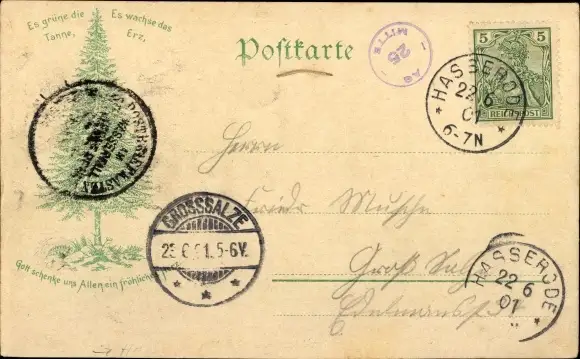 Es grüne die Tanne,
Es wachse das Erz,
Gott schenke uns Allen ein fröhliches
Postkarte
MITTE
25
AG
5 5
REICHSPOST
HASSERODE
22 6
01
6-7N
Herrn
Friedr Musche
Groß Salze
Edelmannstr
GROSSSALZE
23.6.01.5-6V.
HASSERODE
22 6
01